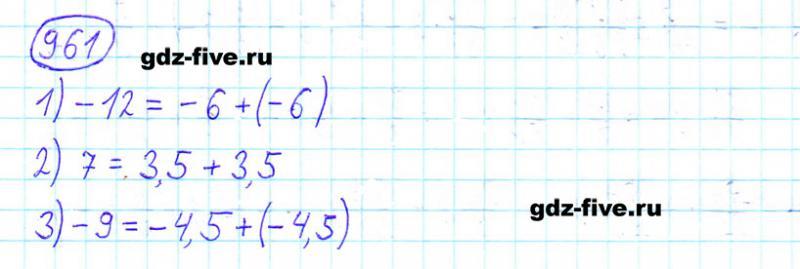 961
gdz-five.ru
1) -12 = -6 + (-6)
2) 7 = 3,5 + 3,5
3) -9 = -4,5 + (-4,5)
gdz-five.ru